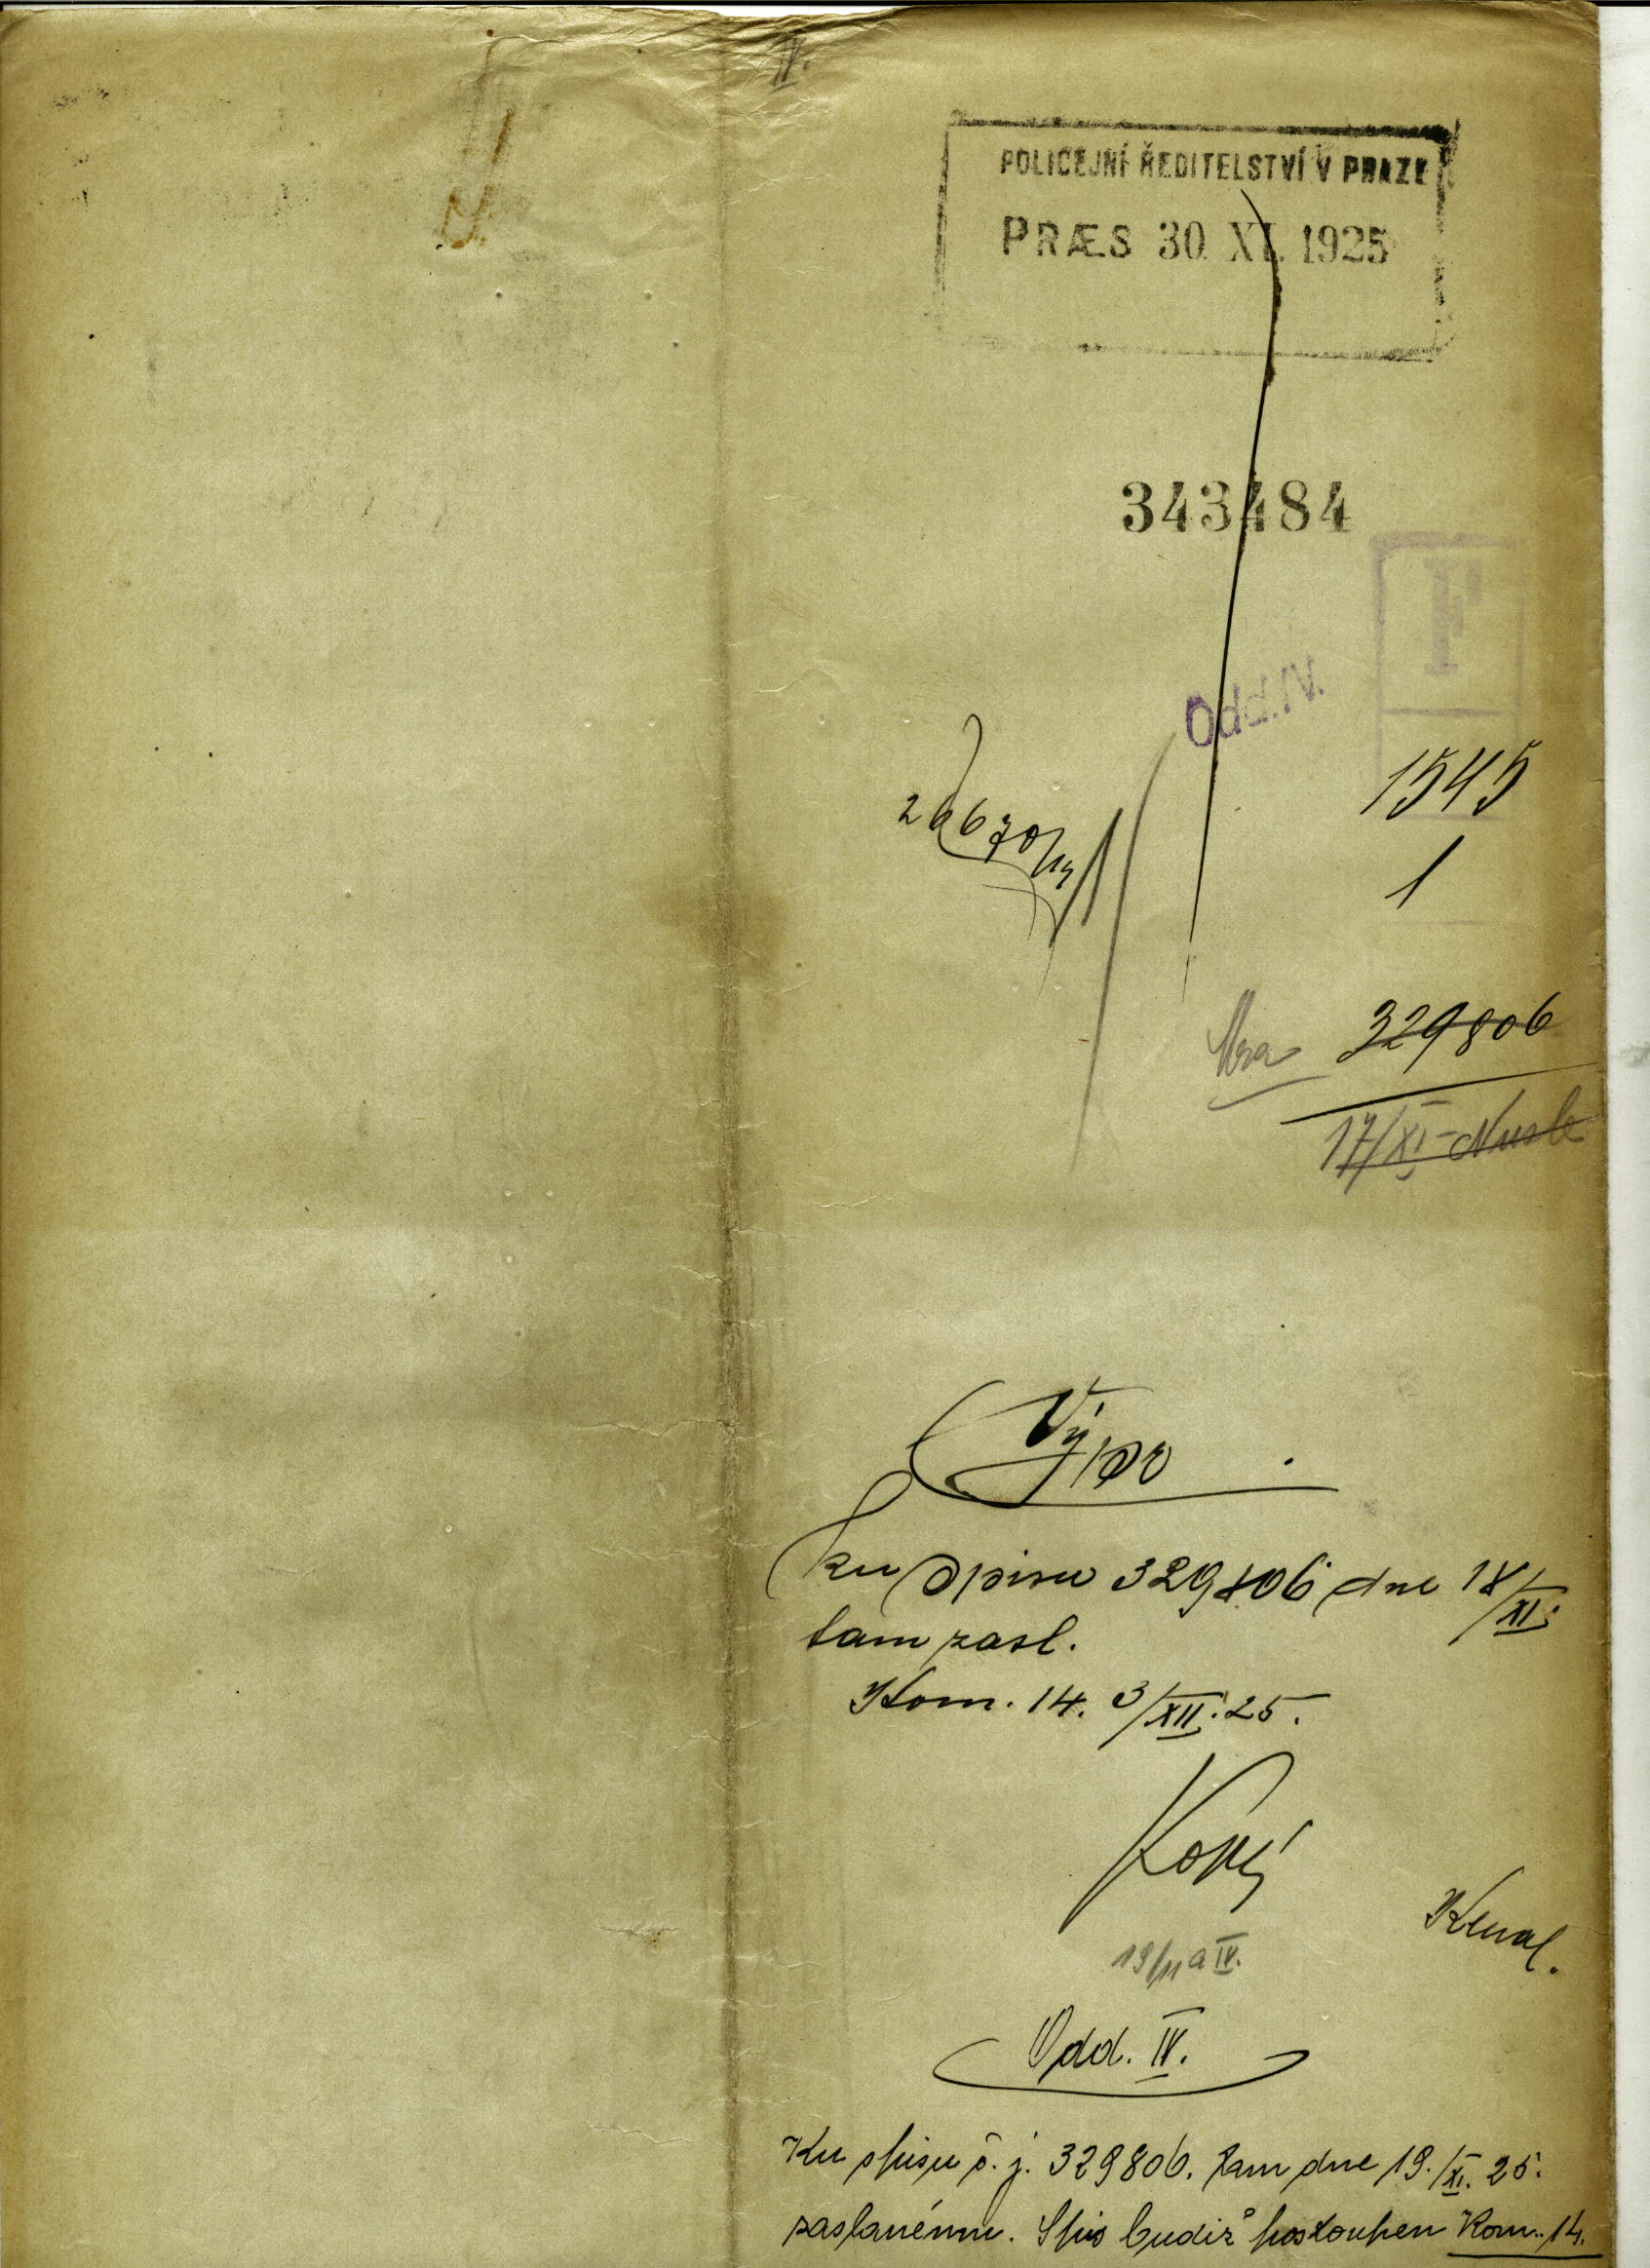 IV.
POLICEJNÍ ŘEDITELSTVÍ V PRAZE
PRÆS 30 XI. 1925
343484
F
Odd. IV.
1545
1
329806
17/XI - Nusle
ku spisu 329806 dne 18/XI.
tam zasl.
Kom. 14. 3/XII. 25.
19/11 a IV.
Odd. IV.
Ku spisu č. j. 329806. tam dne 19./XI. 25.
zaslanému. Spis budiž postoupen Kom. 14.